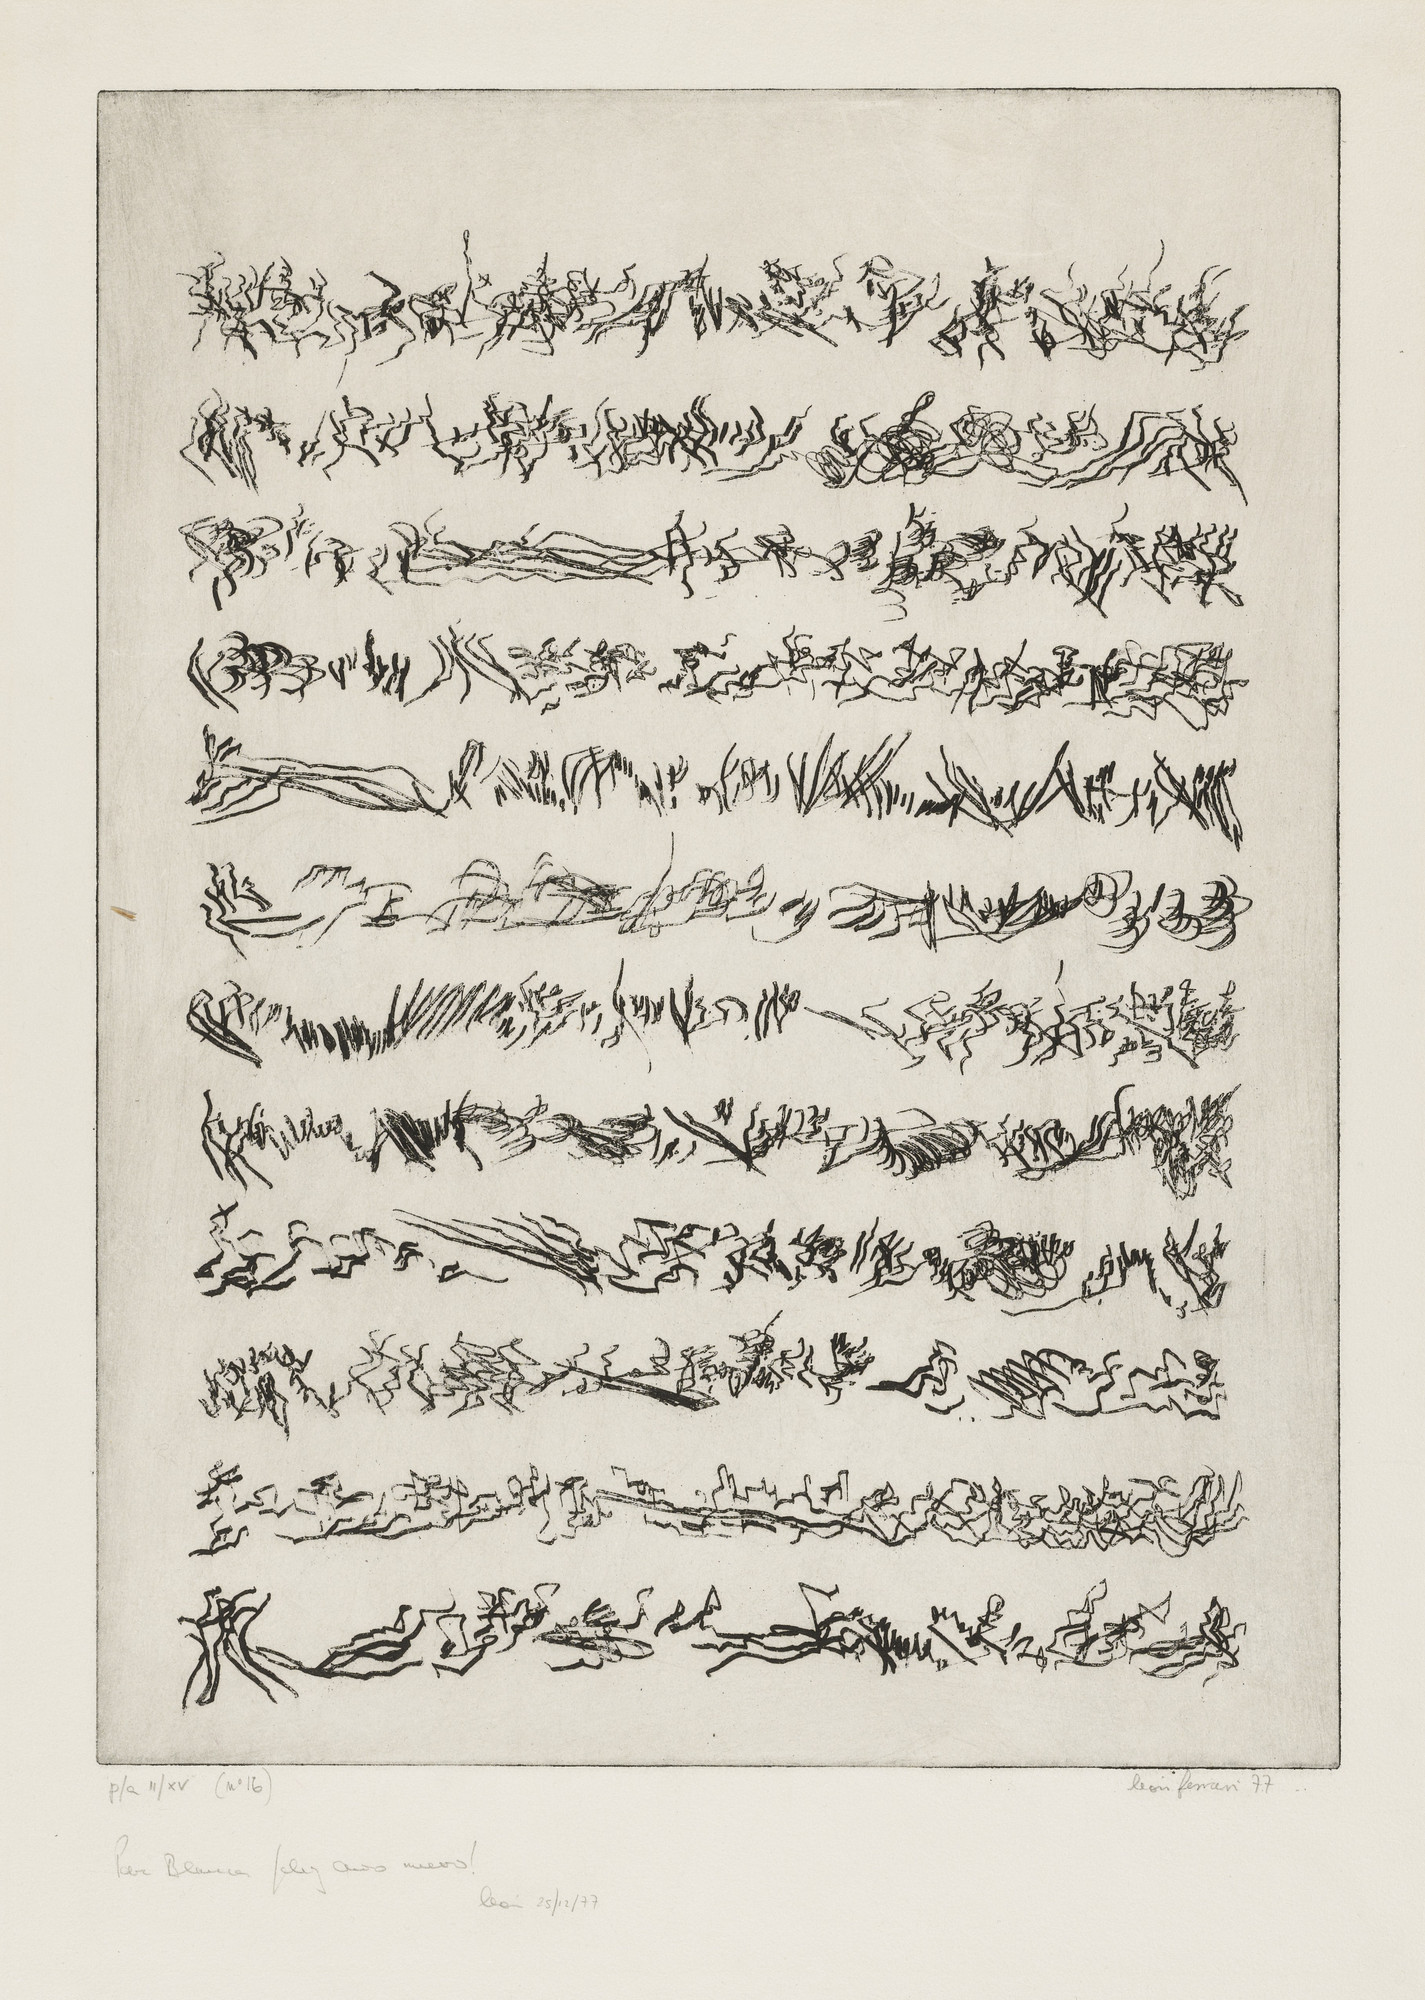 p/a II/XV (nº 16)
león ferrari 77
Para Blanca feliz año nuevo!
león 25/12/77